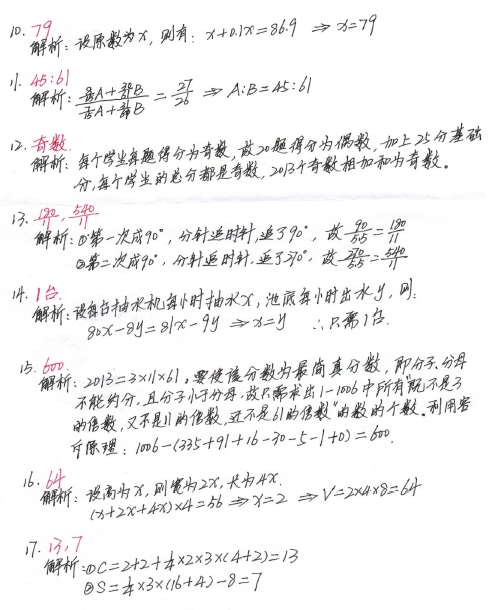 10. 79
解析：设原数为x，则有：x+0.1x=86.9 ⇒ x=79
11. 45:61
解析： = 27/26 ⇒ A:B=45:61
12. 奇数.
解析：每个学生每题得分为奇数，故20题得分为偶数，加上25分基础
分，每个学生的总分都是奇数，2013个奇数相加和为奇数。
13. 180/11，540/11
解析：①第一次成90°，分针追时针，追了90°，故 90/5.5 = 180/11
②第二次成90°，分针追时针，追了270°，故 270/5.5 = 540/11
14. 1台.
解析：设每台抽水机每小时抽水x，池底每小时出水y，则：
80x-8y=81x-9y ⇒ x=y ∴只需1台.
15. 600.
解析：2013=3×11×61，要使该分数为最简真分数，即分子、分母
不能约分，且分子小于分母，故只需求出1-1006中所有"既不是3
的倍数，又不是11的倍数，还不是61的倍数"的数的个数。利用容
斥原理：1006-(335+91+16-30-5-1+0)=600.
16. 64
解析：设高为x，则宽为2x，长为4x.
(x+2x+4x)×4=56 ⇒ x=2 ⇒ V=2×4×8=64
17. 13，7
解析：①C=2+2+¼×2×3×(4+2)=13
②S=¼×3×(16+4)-8=7